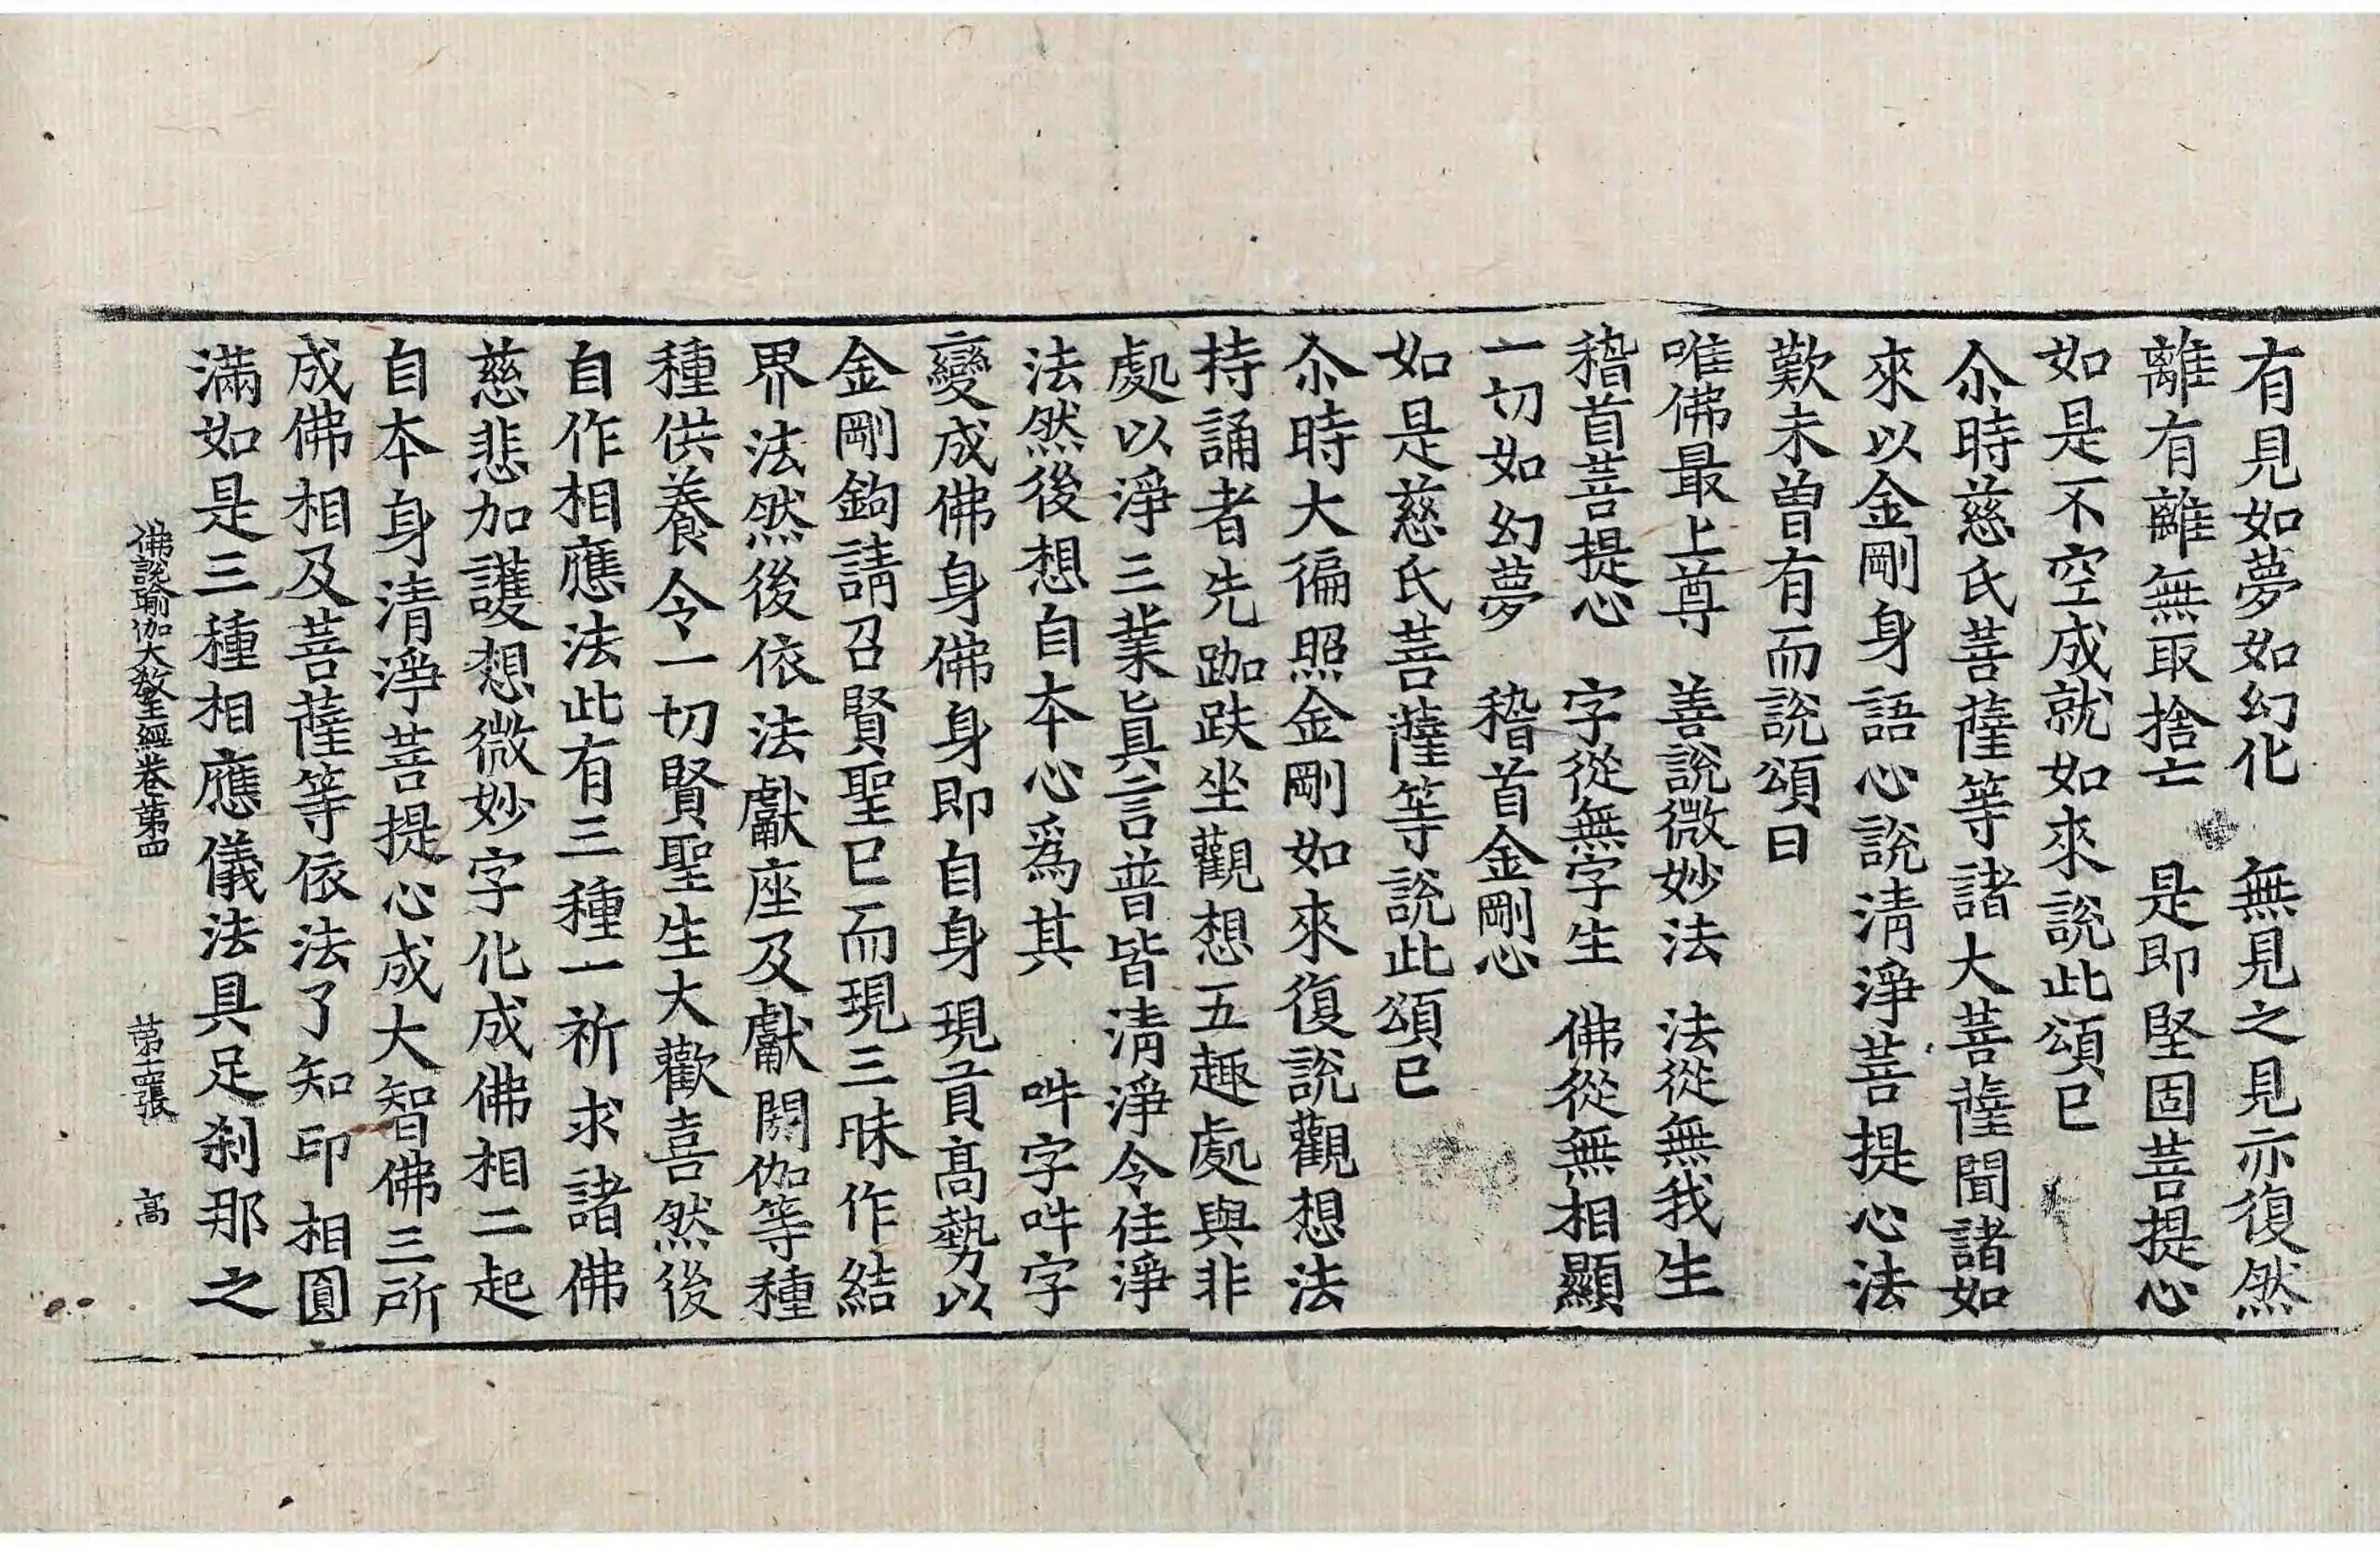 有見如夢如幻化　無見之見亦復然
離有離無取捨亡　是即堅固菩提心
如是不空成就如來說此頌已
尒時慈氏菩薩等諸大菩薩聞諸如
來以金剛身語心說清淨菩提心法
歎未曾有而說頌曰
唯佛最上尊　善說微妙法　法從無我生
稽首菩提心　字從無字生　佛從無相顯
一切如幻夢　稽首金剛心
如是慈氏菩薩等說此頌已
尒時大徧照金剛如來復說觀想法
持誦者先跏趺坐觀想五趣處與非
處以淨三業眞言普皆清淨令住淨
法然後想自本心爲其　吽字吽字
變成佛身佛身即自身現貢高勢以
金剛鉤請召賢聖已而現三昧作結
界法然後依法獻座及獻閼伽等種
種供養令一切賢聖生大歡喜然後
自作相應法此有三種一祈求諸佛
慈悲加護想微妙字化成佛相二起
自本身清淨菩提心成大智佛三所
成佛相及菩薩等依法了知印相圓
滿如是三種相應儀法具足刹那之
佛說瑜伽大敎王經卷第四　第十二張　髙